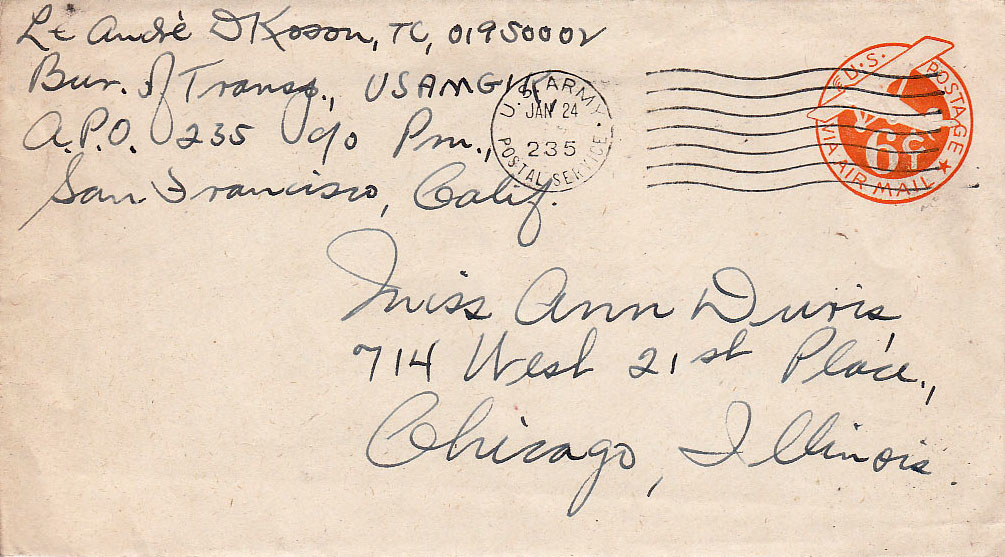 Lt André D Koson, TC, 01950002
Bur. of Transp., USAMGIK,
A.P.O. 235 c/o Pm.,
San Francisco, Calif.
U.S. ARMY
JAN 24
235
POSTAL SERVICE
U.S. POSTAGE
6¢
VIA AIR MAIL
Miss Ann Duris,
714 West 21st Place.,
Chicago, Illinois.